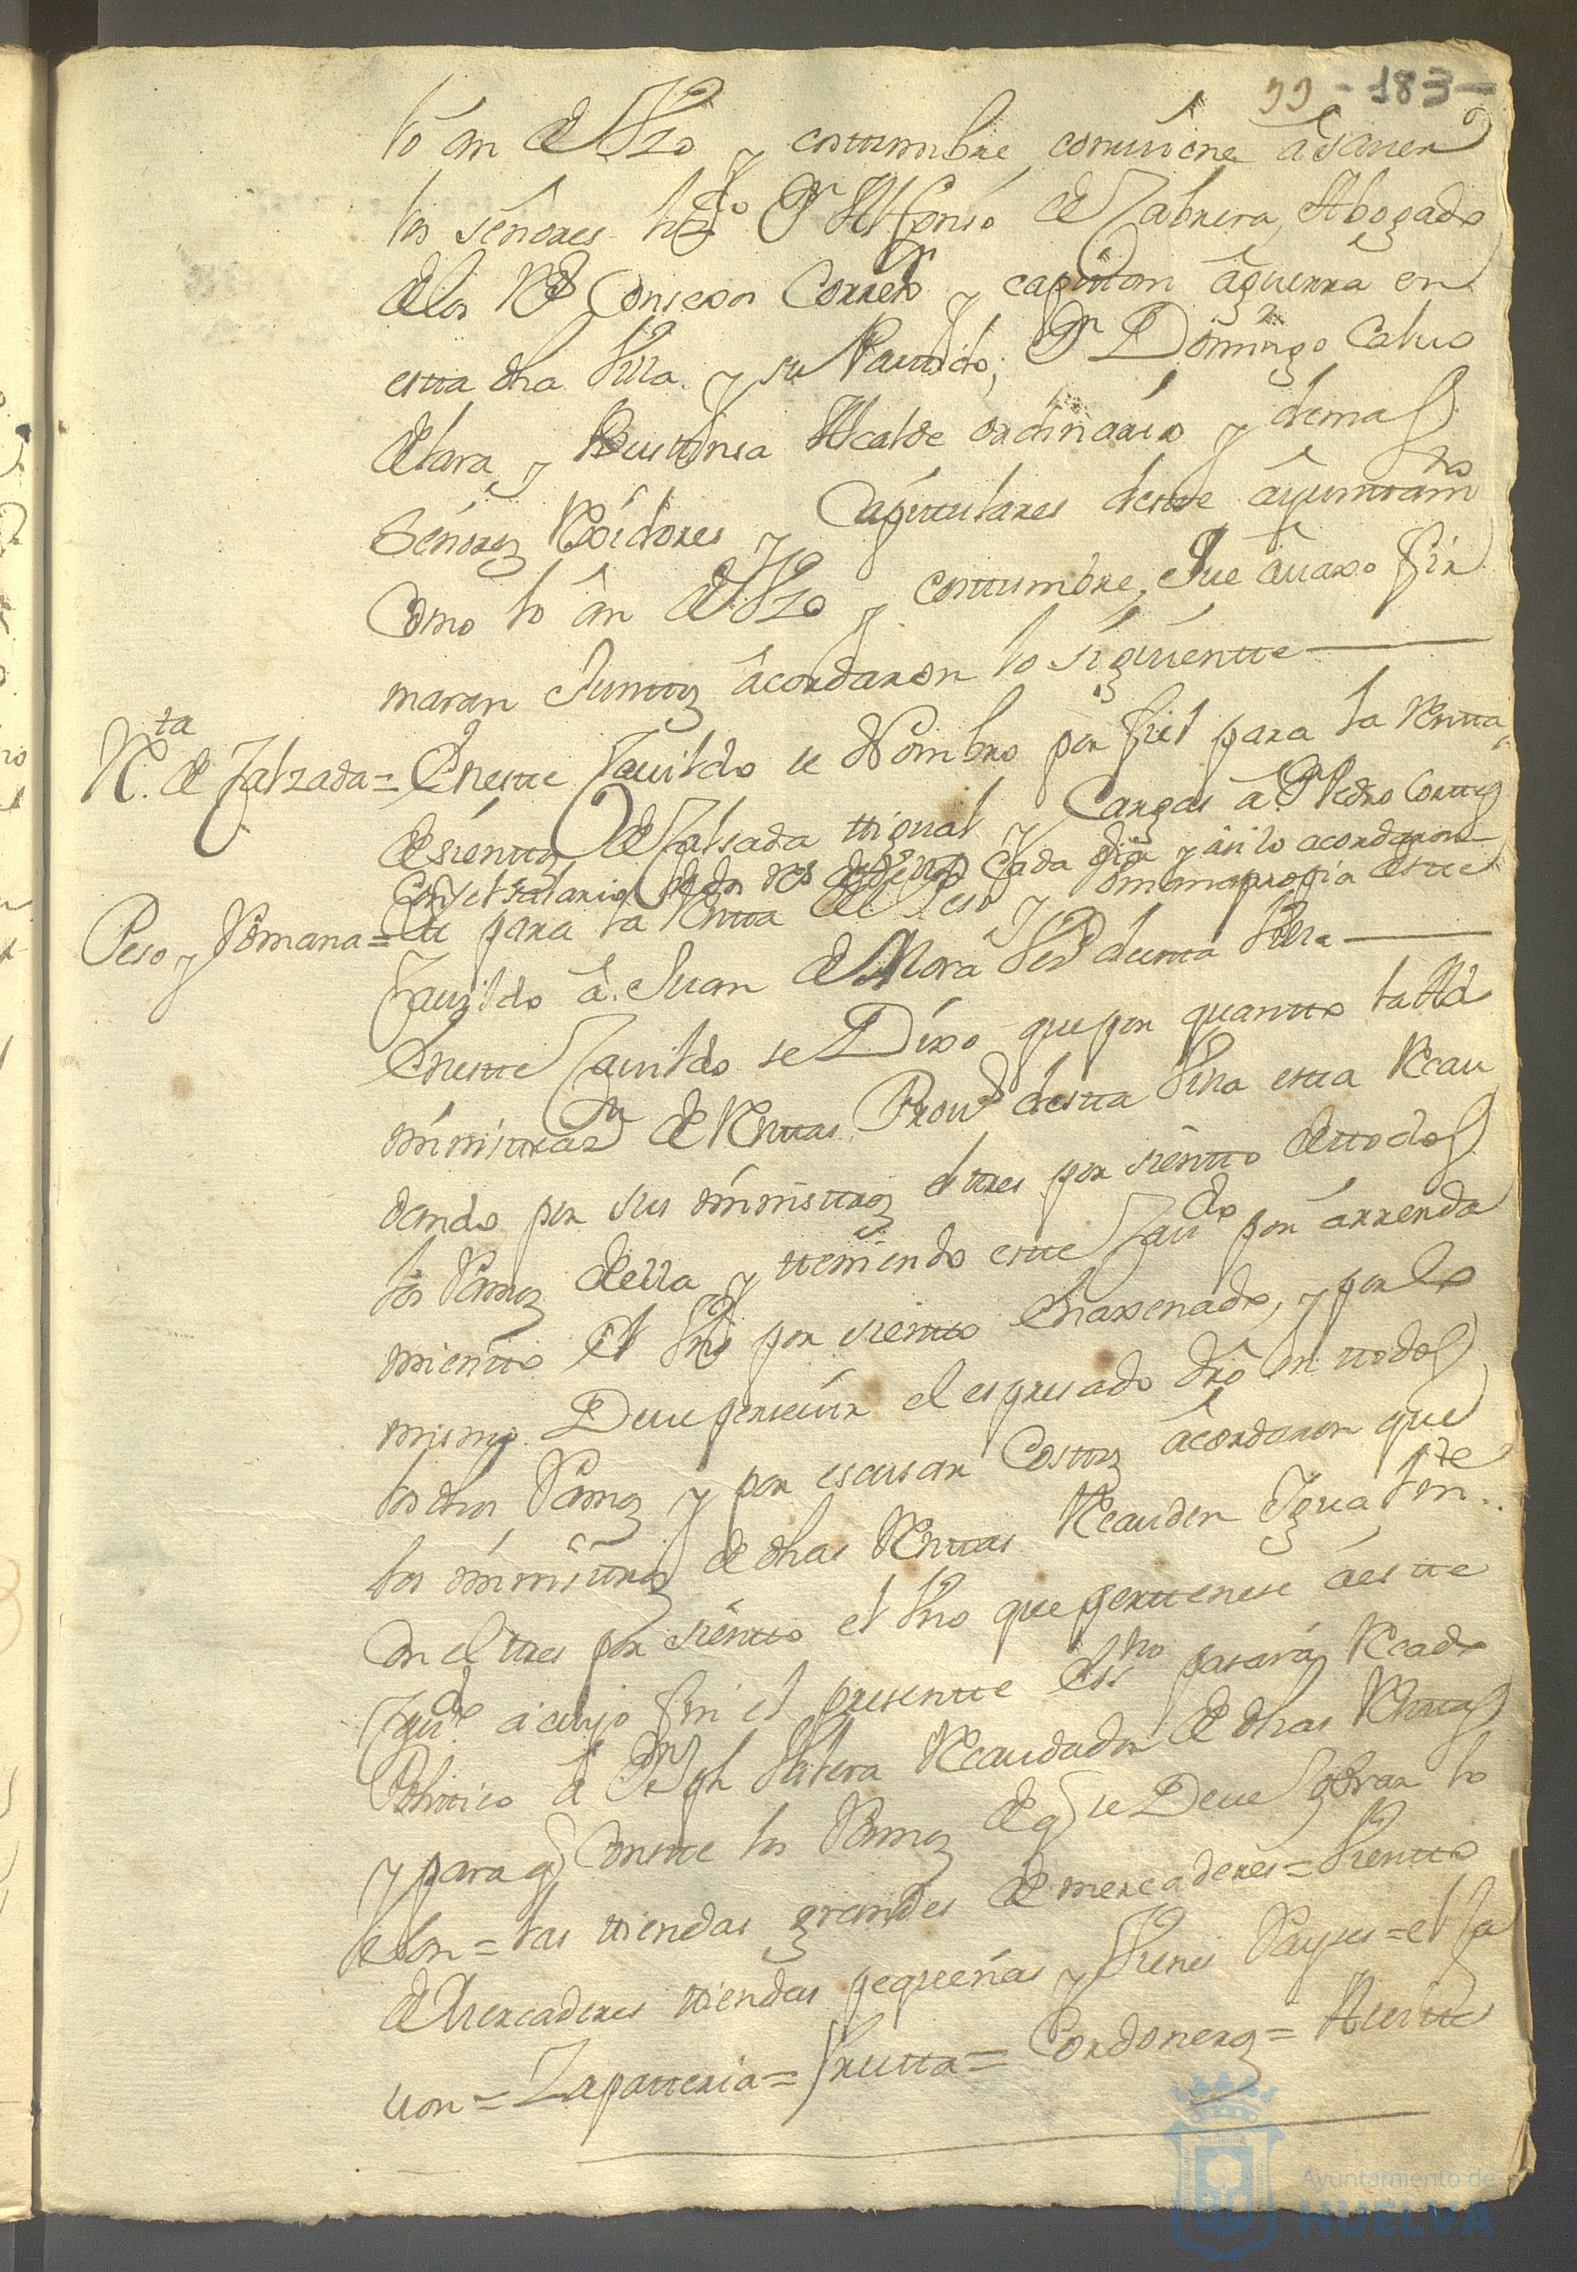 99 - 183 -
lo an de Uzo y costtumbre combiene a saver
los señores lizdo Dn Alfonso de Cabrera, Abogado
de los Rs Consexos Correxor y capitan a guerra en
estta dha Villa y su Parttido; Dn Domingo Calvo
de lara y Bustinsa Alcalde ordinario y demas
Señores Rexidores y Capitulares deste ayunttamto
Como lo an de Uzo y costtumbre, que avaxo fir
maran Junttos acordaron lo siguientte
Rta de Zalzada = En estte Cavildo se Nombro por fiel para la Rentta
de sienttos de Calsada ttigual y Cargas a Dn Pedro Corttes
Con el salario de dos Rs de vellon Cada dia y asi lo acordaron
Peso y Romana = Que para la Rentta del Peso y Romana propia destte
Cavildo a Juan de Mora Vesº de estta Villa
En estte Cavildo se Dixo que por quantto la Ad
ministrazn de Renttas Provs destta Villa estta Recau
dando por sus ministros el ttres por sientto de ttodos
los Ramos della y tteniendo estte Cavdo por arrenda
mientto el Uno por sientto Enaxenado, y por lo
mismo Deve persevir el espresado dro en ttodos
los dhos Ramos y por escusar Costtos acordaron que
los ministros de dhas Renttas Recauden Igualmte
Con el ttres por sientto el Uno que perttenese a estte
Cavdo a cuyo fin el presentte Essno pasará Recado
Polittico a Dn Jph Valera Recaudador de dhas Renttas
y para q Constte los Ramos de q se Deve Cobrar lo
es son = las ttiendas grandes de mercaderes = Vientto
de Mercaderes ttiendas pequeñas y Vienes Rayses = el Ja
von = Zapatteria = frutta = Cordoneros = Aseitte
Ayuntamiento de
HUELVA